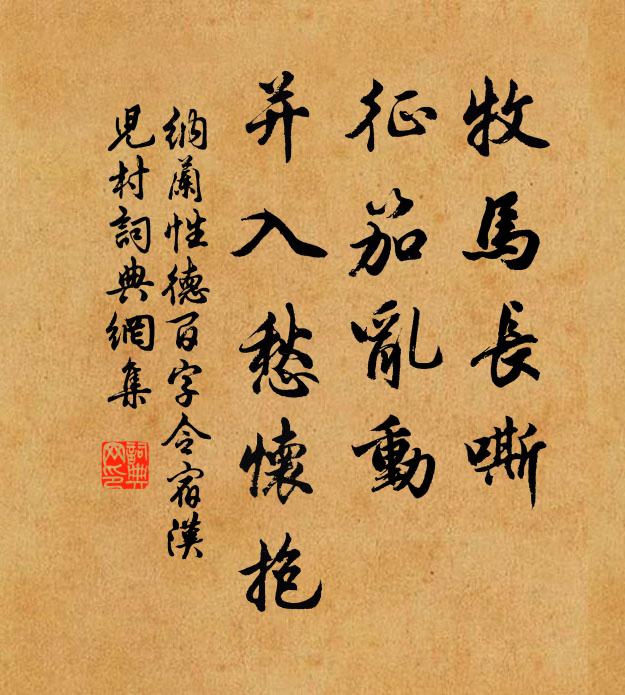 牧馬長嘶
征笳亂動
并入愁懷抱
納蘭性德百字令宿漢
兒村詞典網集
詞典
网印